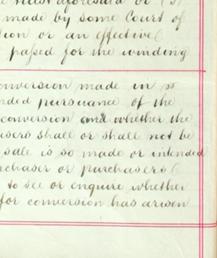 made by some Court of
sion or an effective
passed for the winding
conversion made in
nded pursuance of the
conversion and whether the
asers shall or shall not be
sale is so made or intended
rchaser or purchasers
to see or enquire whether
for conversion has arisen